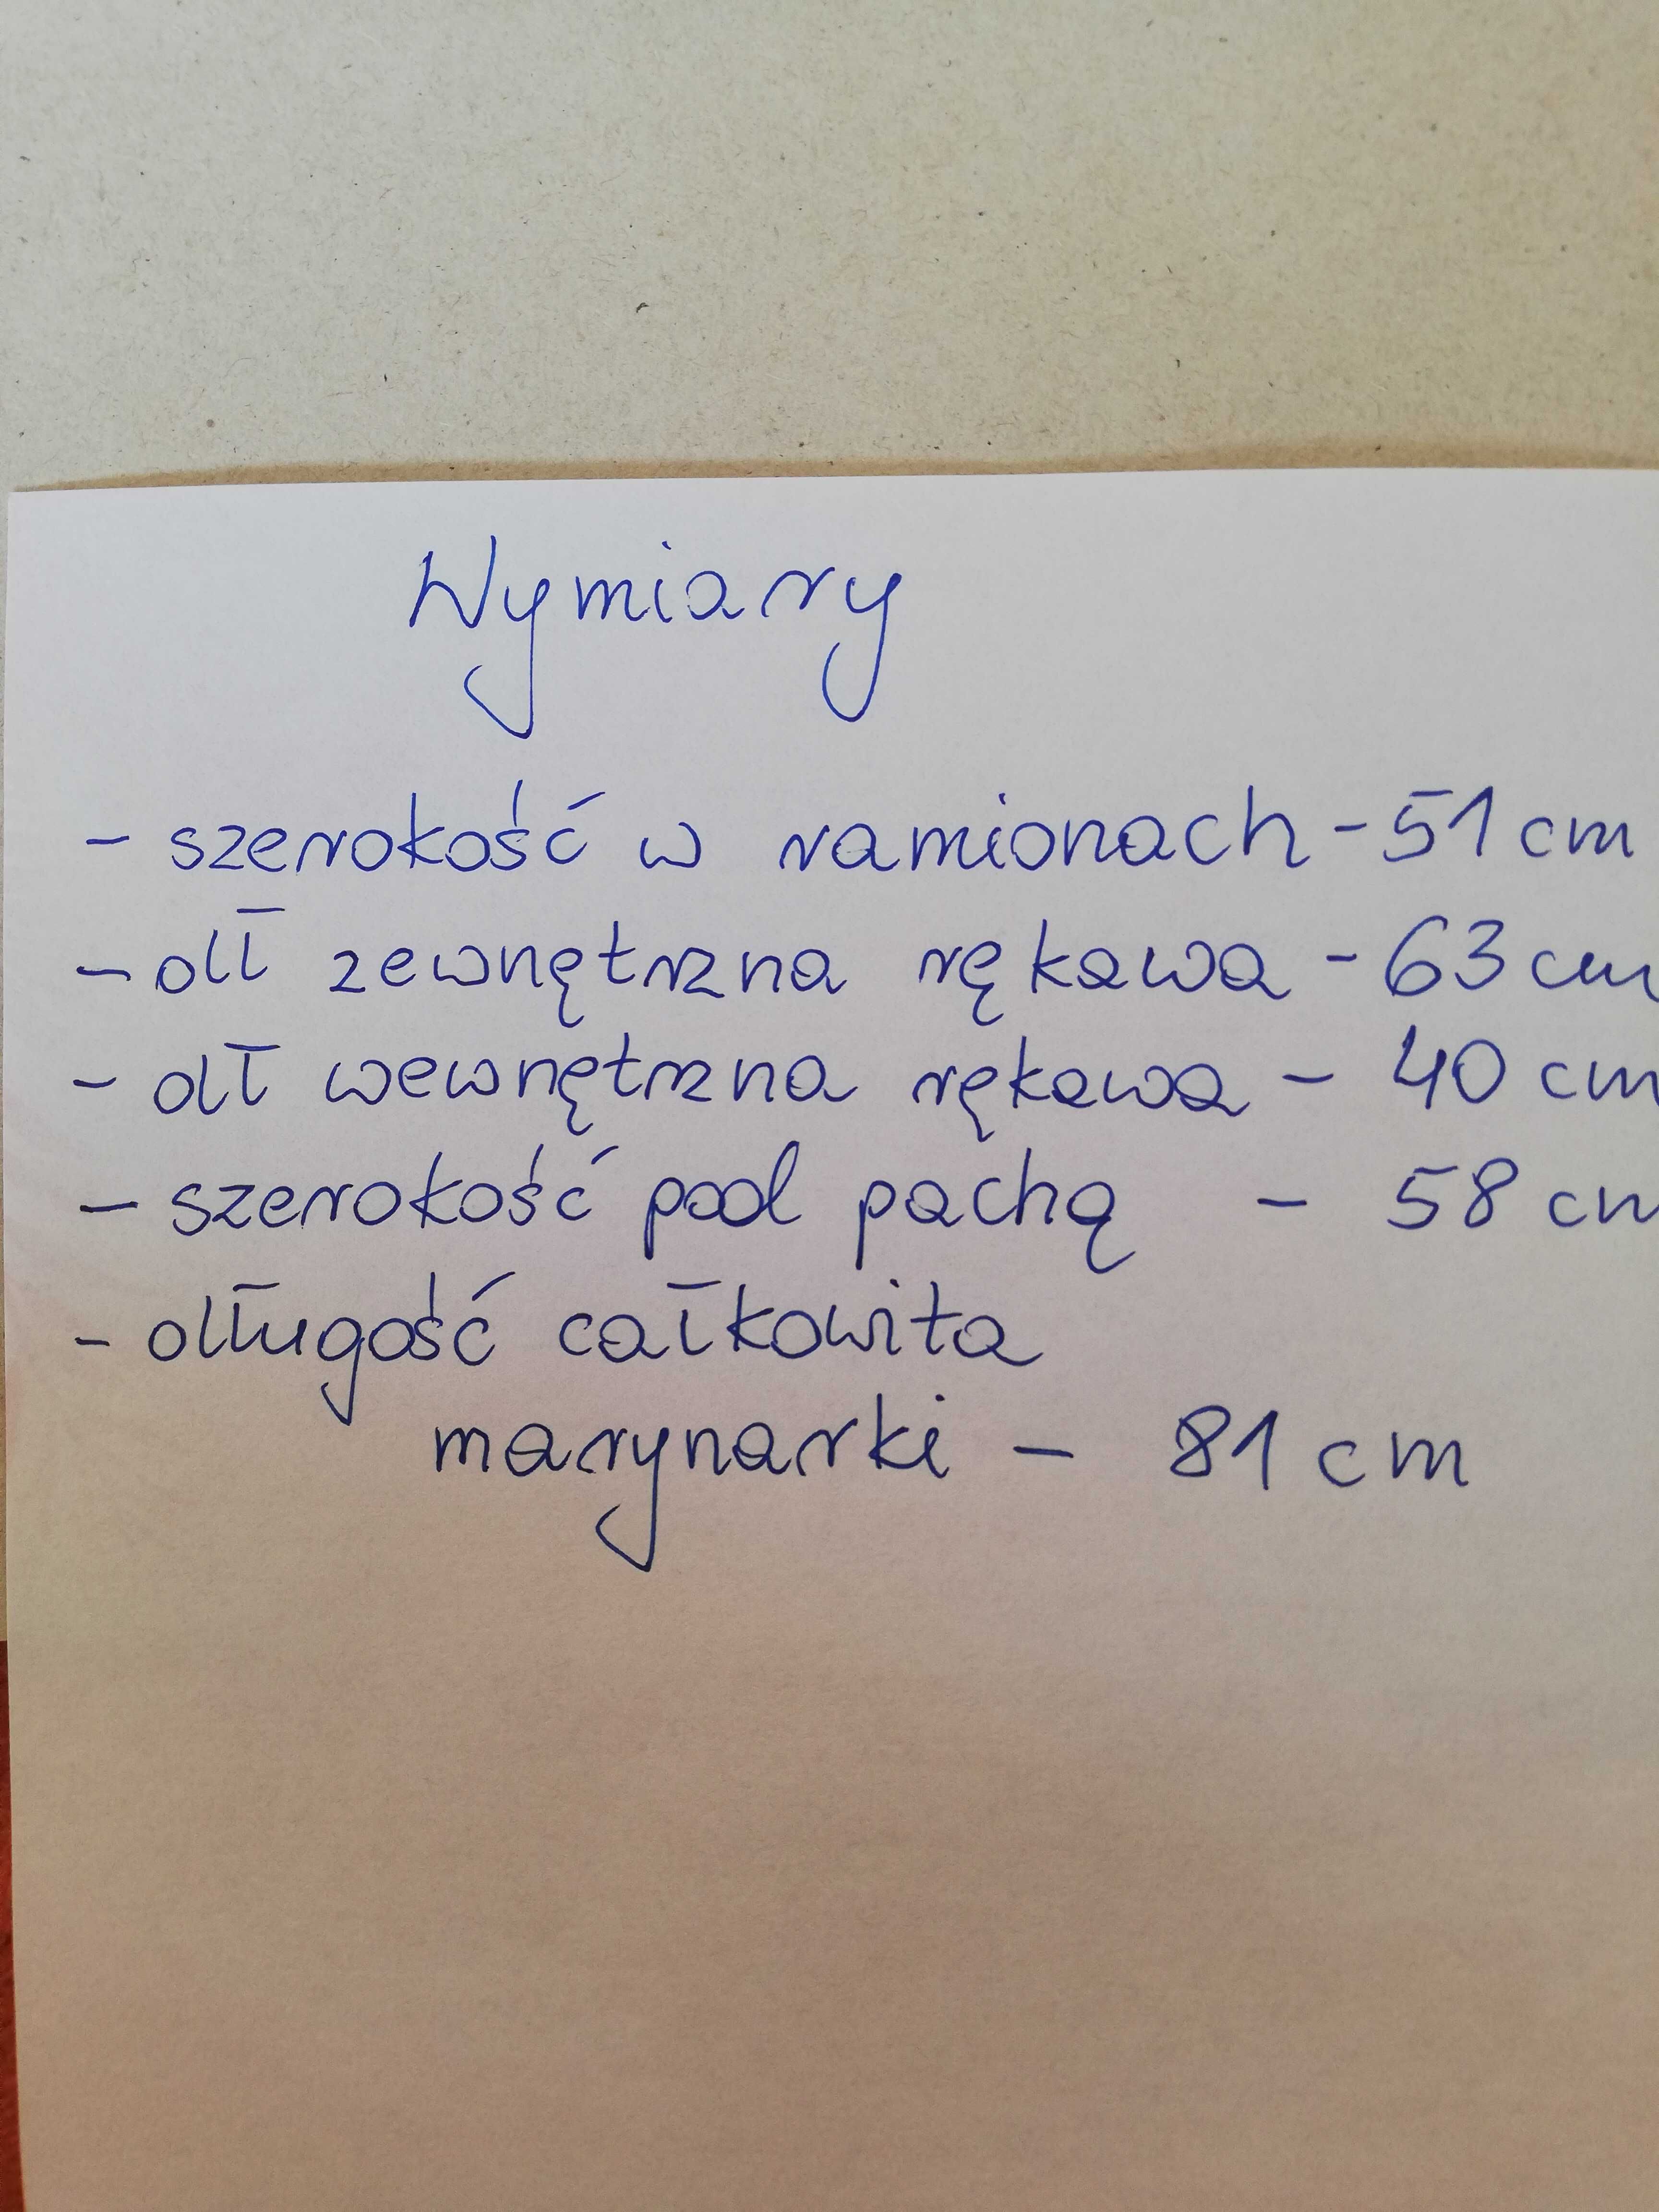 Wymiary
- szerokość w ramionach - 51 cm
- dł zewnętrzna rękawa - 63 cm
- dł wewnętrzna rękawa - 40 cm
- szerokość pod pachą - 58 cm
- długość całkowita
marynarki - 81 cm